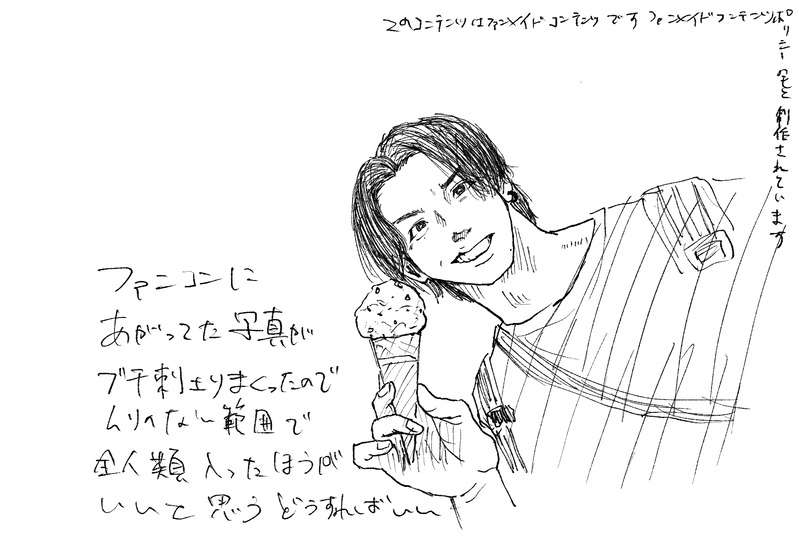 このコンテンツはファンメイドコンテンツです ファンメイドコンテンツポリシーのもと創作されています
ファンコンに
あがってた写真が
ブチ刺さりまくったので
ムリのない範囲で
全人類入ったほうが
いいと思うどうすればいい